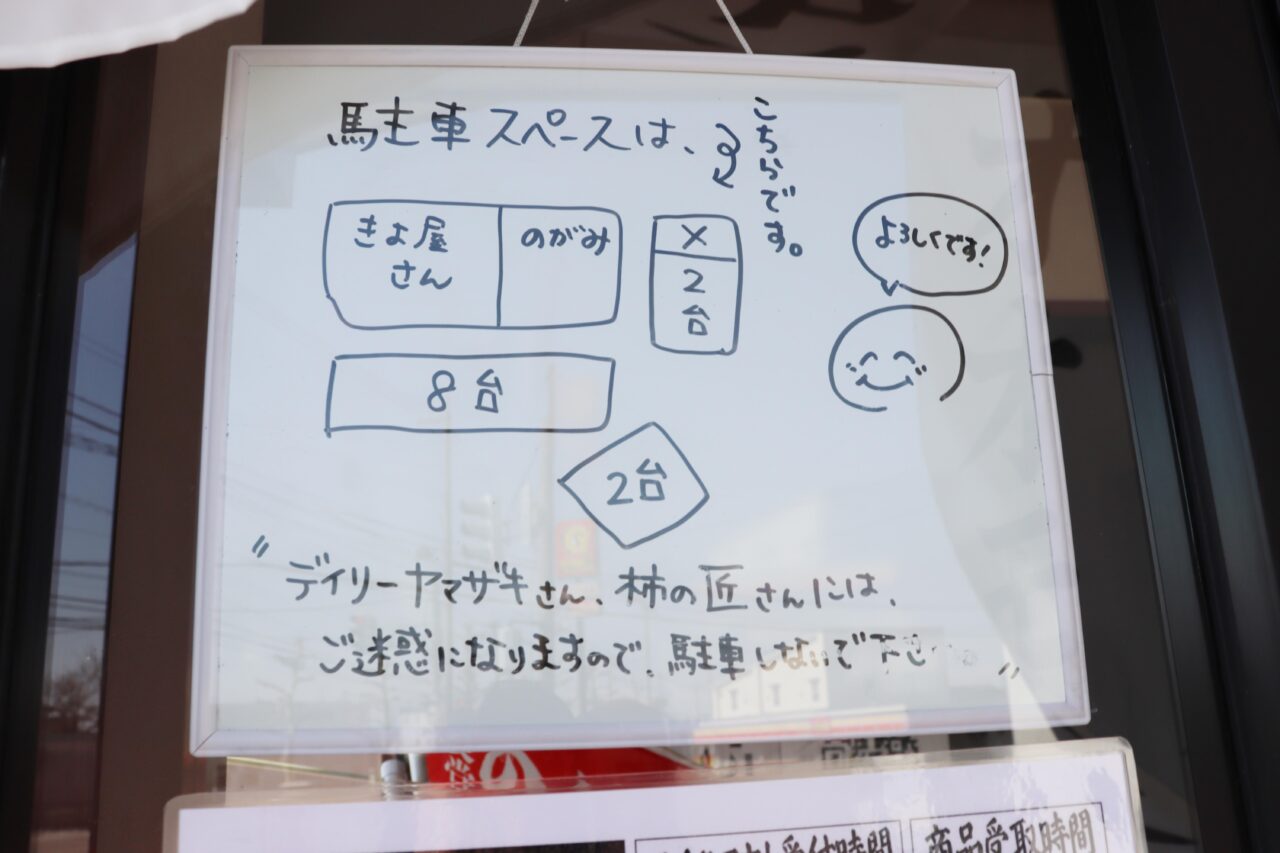 駐車スペースは、
こちらです。
きよ屋
さん
のがみ
×
2
台
よろしくです!
8台
2台
〃デイリーヤマザキさん、柿の匠さんには、
ご迷惑になりますので、駐車しないで下さ 〃
の
受付時間
商品受取時間